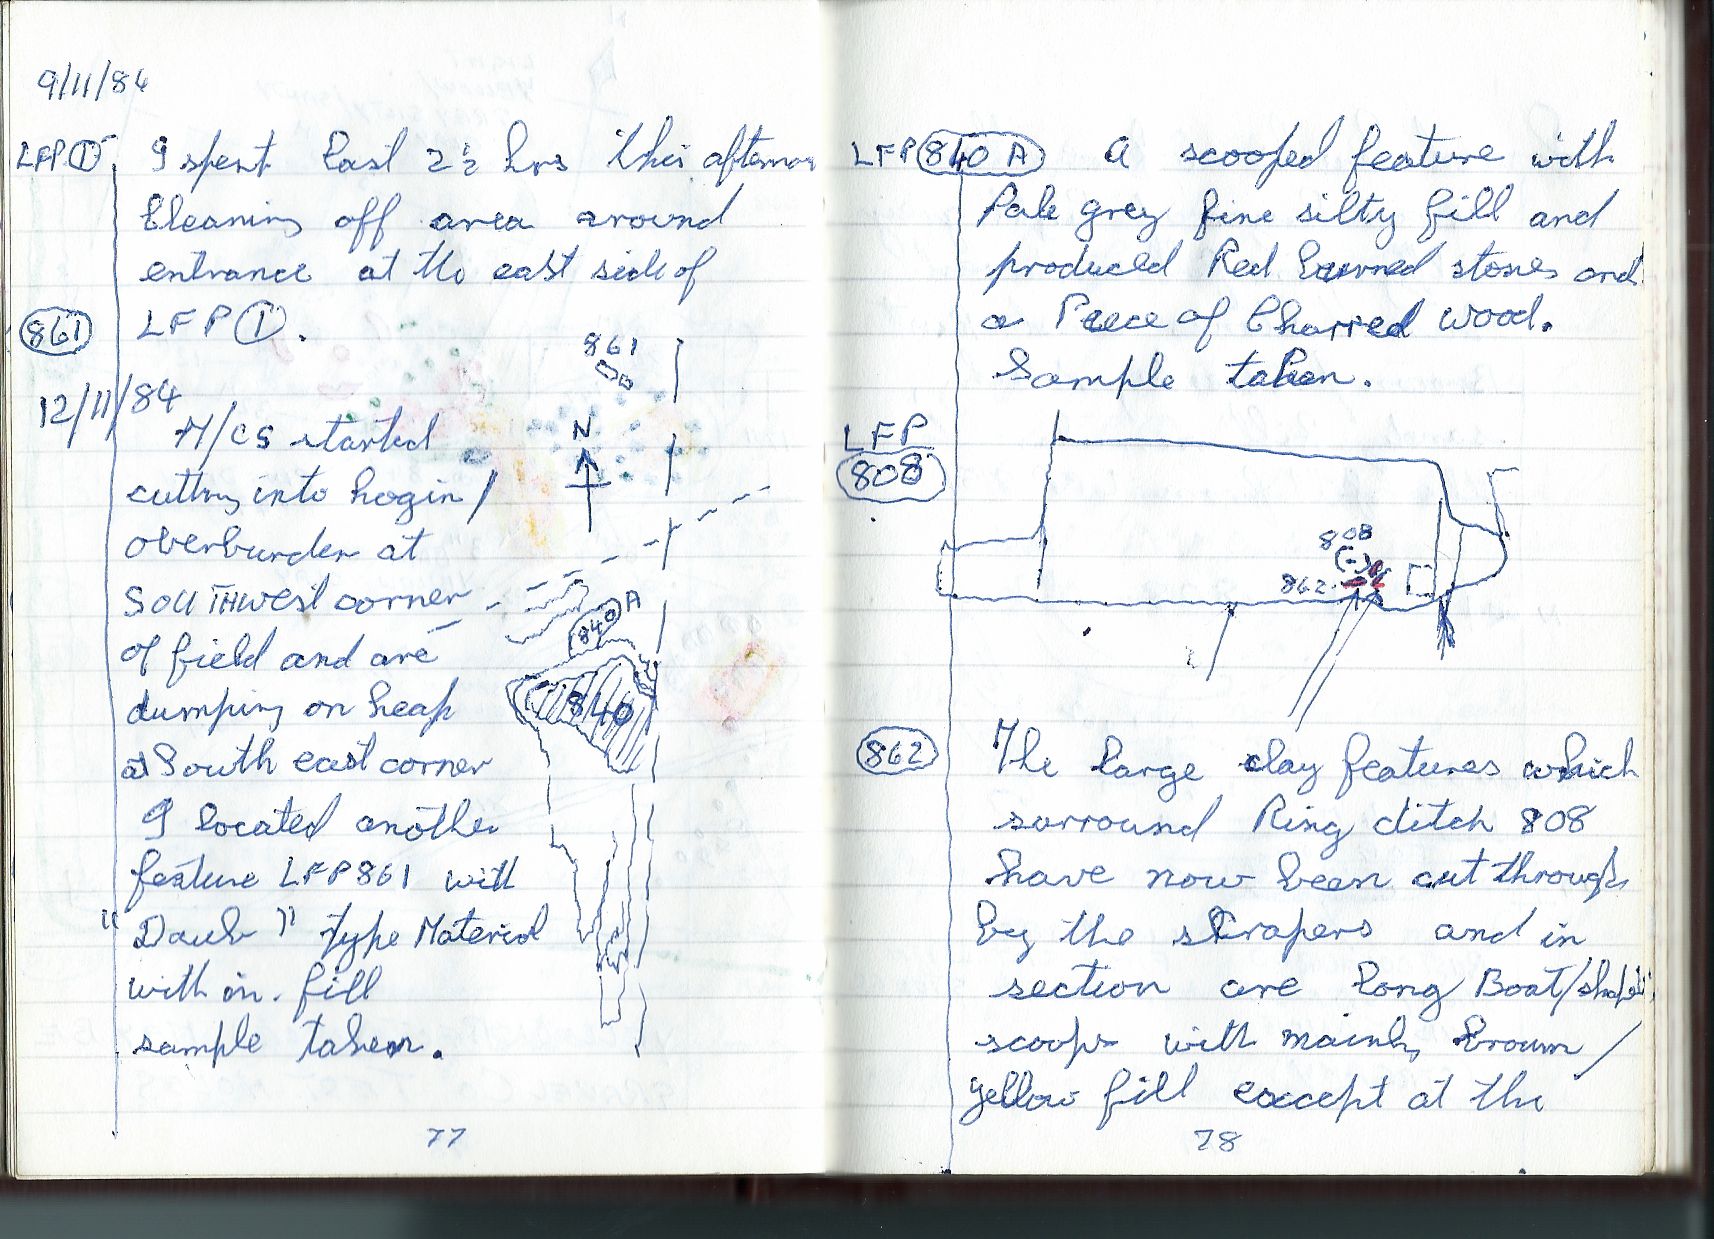 9/11/84
LFP ① I spent last 2½ hrs this afternoon
cleaning off area around
entrance at the east side of
861 LFP ①.
861
12/11/84
M/CS started
N
cutting into hogin /
overburden at
SOUTHwest corner
840 A
of field and are
840
dumping on heap
at South east corner
I located another
feature LFP861 with
"Daub" type Material
with in. fill
sample taken.
77
LFP 840 A a scooped feature with
Pale grey fine silty fill and
produced Red burned stones and
a Peece of Charred wood.
Sample taken.
LFP
808
808
862
862 The large clay features which
surround Ring ditch 808
have now been cut through
by the scrapers and in
section are long Boat/shaped
scoops with mainly brown /
yellow fill except at the
78